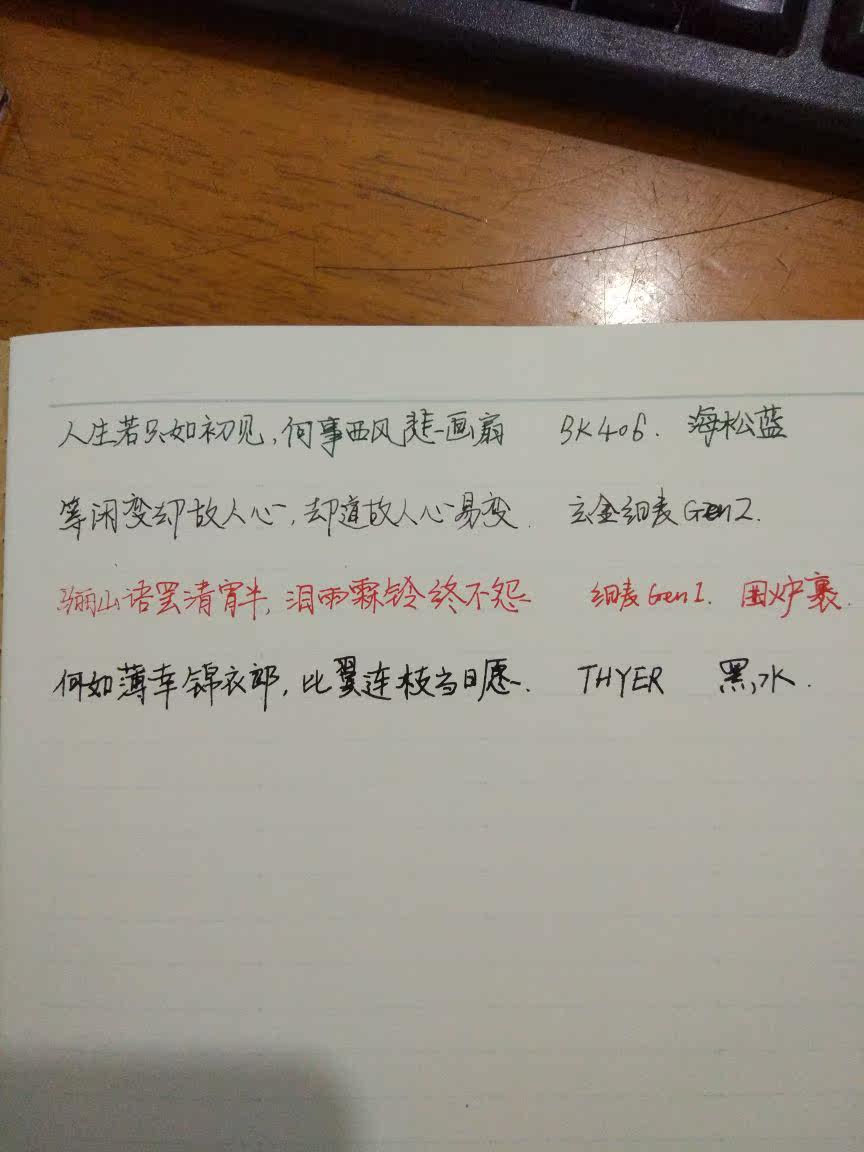 人生若只如初见,何事西风悲画扇 BK406. 海松蓝
等闲变却故人心,却道故人心易变. 玄金细表Gen2.
骊山语罢清宵半,泪雨霖铃终不怨 细表Gen1. 围炉裏.
何如薄幸锦衣郎,比翼连枝当日愿. THYER 黑水.